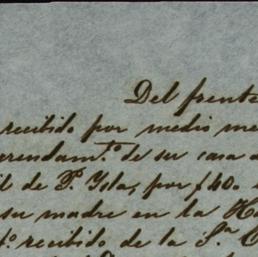 Del frente
recibido por medio me
rrendam.to de su casa
de P. Yslas, por $40.
su madre en la Ha
recibido de la S.a